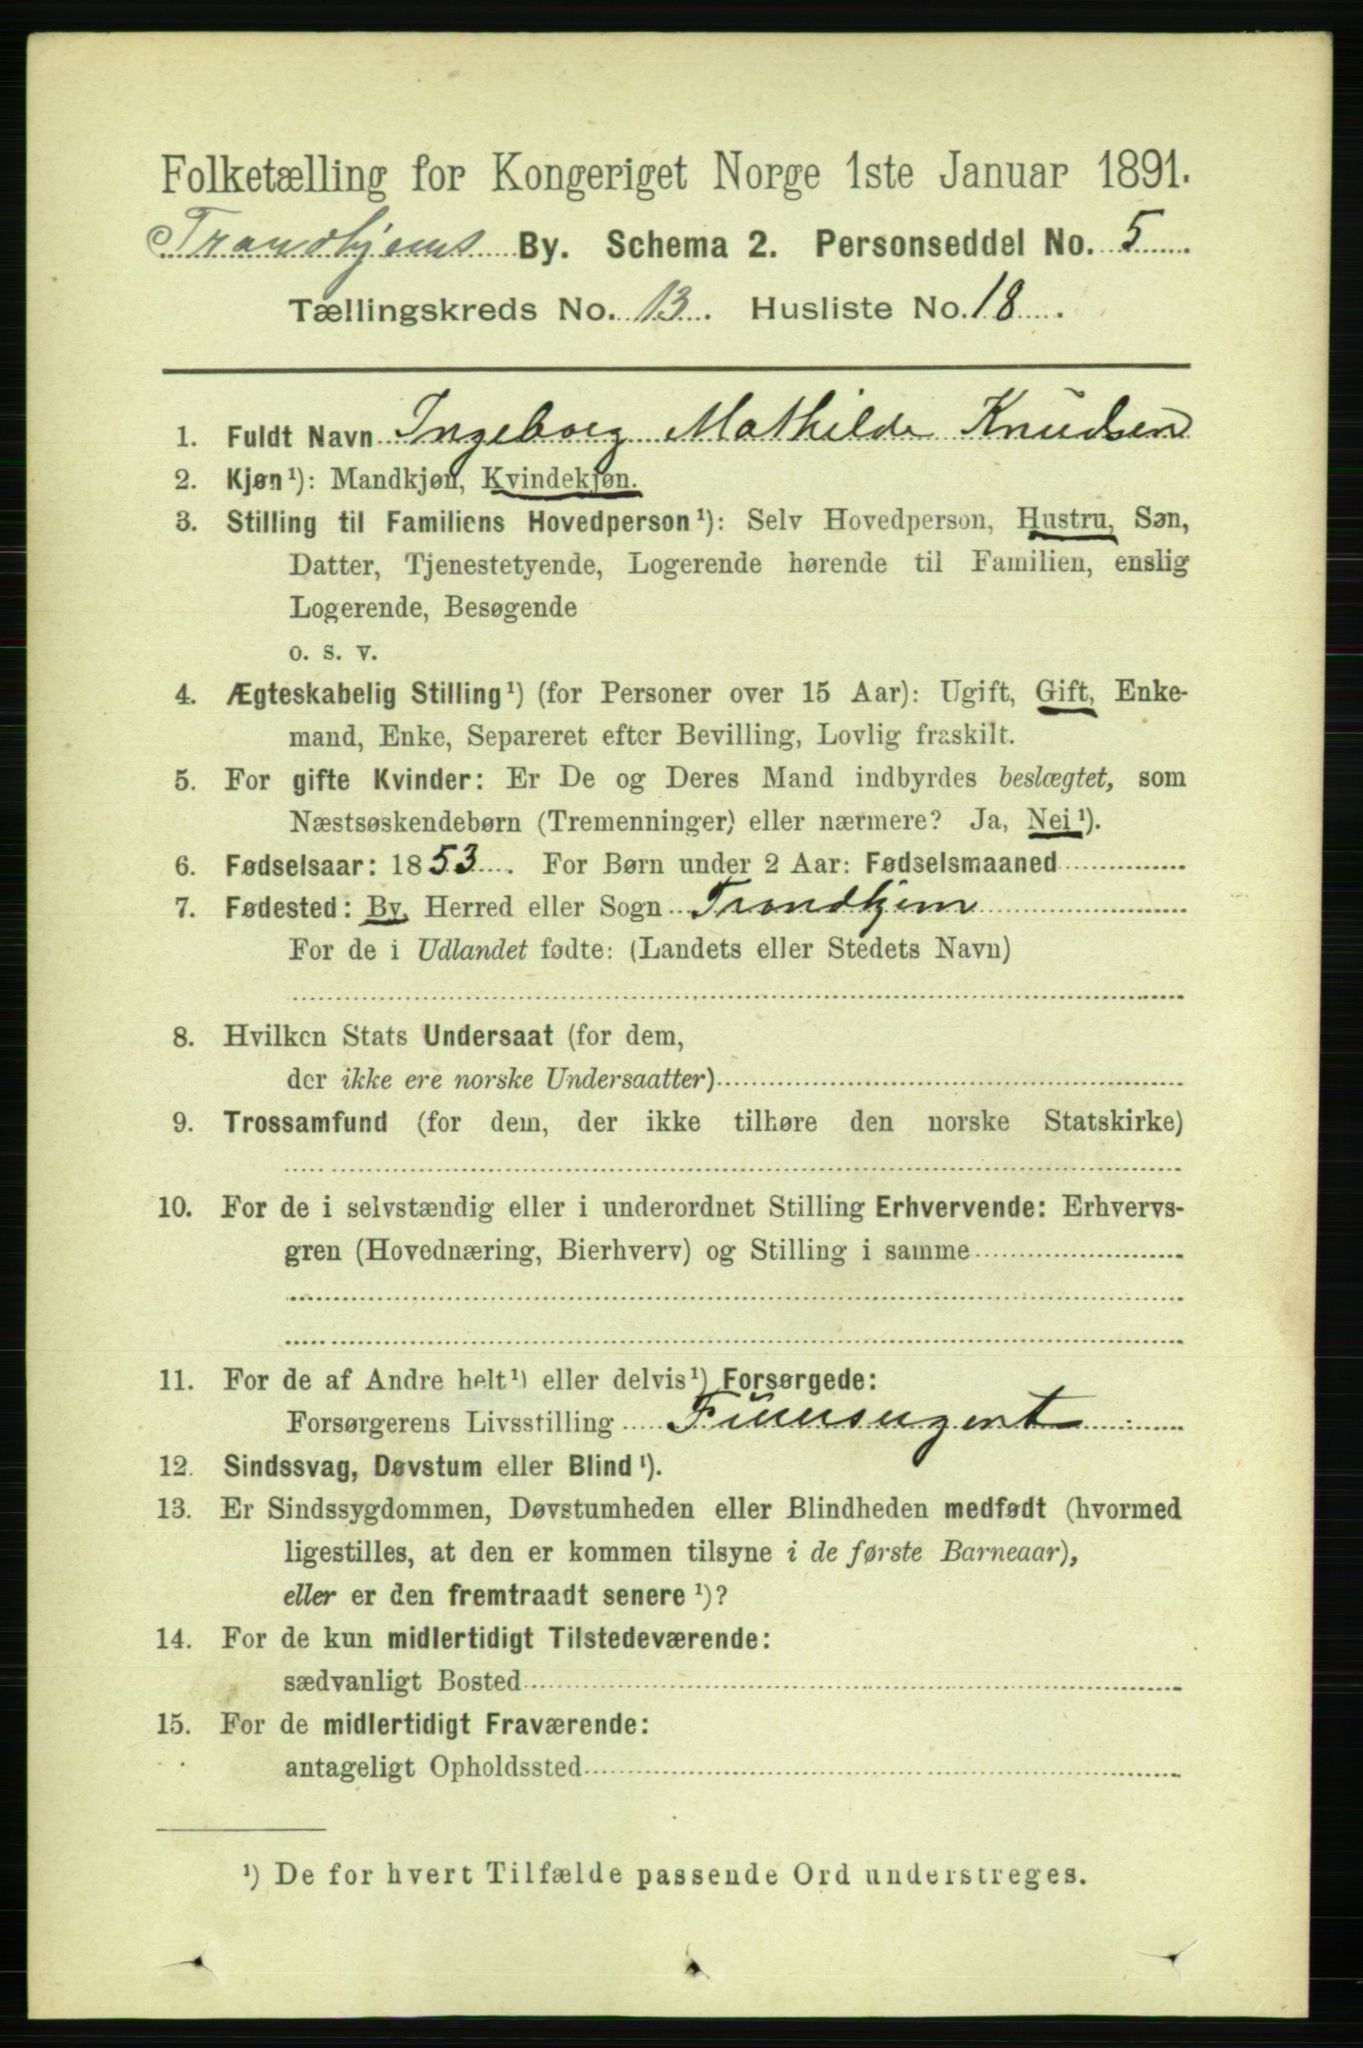 Folketælling for Kongeriget Norge 1ste Januar 1891.
Trondhjems By. Schema 2. Personseddel No. 5
Tællingskreds No. 13. Husliste No. 18.
1. Fuldt Navn Ingeborg Mathilde Knudsen
2. Kjøn¹): Mandkjøn, Kvindekjøn.
3. Stilling til Familiens Hovedperson¹): Selv Hovedperson, Hustru, Søn,
Datter, Tjenestetyende, Logerende hørende til Familien, enslig
Logerende, Besøgende
o. s. v.
4. Ægteskabelig Stilling¹) (for Personer over 15 Aar): Ugift, Gift, Enke-
mand, Enke, Separeret efter Bevilling, Lovlig fraskilt.
5. For gifte Kvinder: Er De og Deres Mand indbyrdes beslægtet, som
Næstsøskendebørn (Tremenninger) eller nærmere? Ja, Nei¹).
6. Fødselsaar: 1853. For Børn under 2 Aar: Fødselsmaaned
7. Fødested: By, Herred eller Sogn Trondhjem
For de i Udlandet fødte: (Landets eller Stedets Navn)
8. Hvilken Stats Undersaat (for dem,
der ikke ere norske Undersaatter)
9. Trossamfund (for dem, der ikke tilhøre den norske Statskirke)
10. For de i selvstændig eller i underordnet Stilling Erhvervende: Erhvervs-
gren (Hovednæring, Bierhverv) og Stilling i samme
11. For de af Andre helt¹) eller delvis¹) Forsørgede:
Forsørgerens Livsstilling
12. Sindssvag, Døvstum eller Blind¹).
13. Er Sindssygdommen, Døvstumheden eller Blindheden medfødt (hvormed
ligestilles, at den er kommen tilsyne i de første Barneaar),
eller er den fremtraadt senere¹)?
14. For de kun midlertidigt Tilstedeværende:
sædvanligt Bosted
15. For de midlertidigt Fraværende:
antageligt Opholdssted
¹) De for hvert Tilfælde passende Ord understreges.